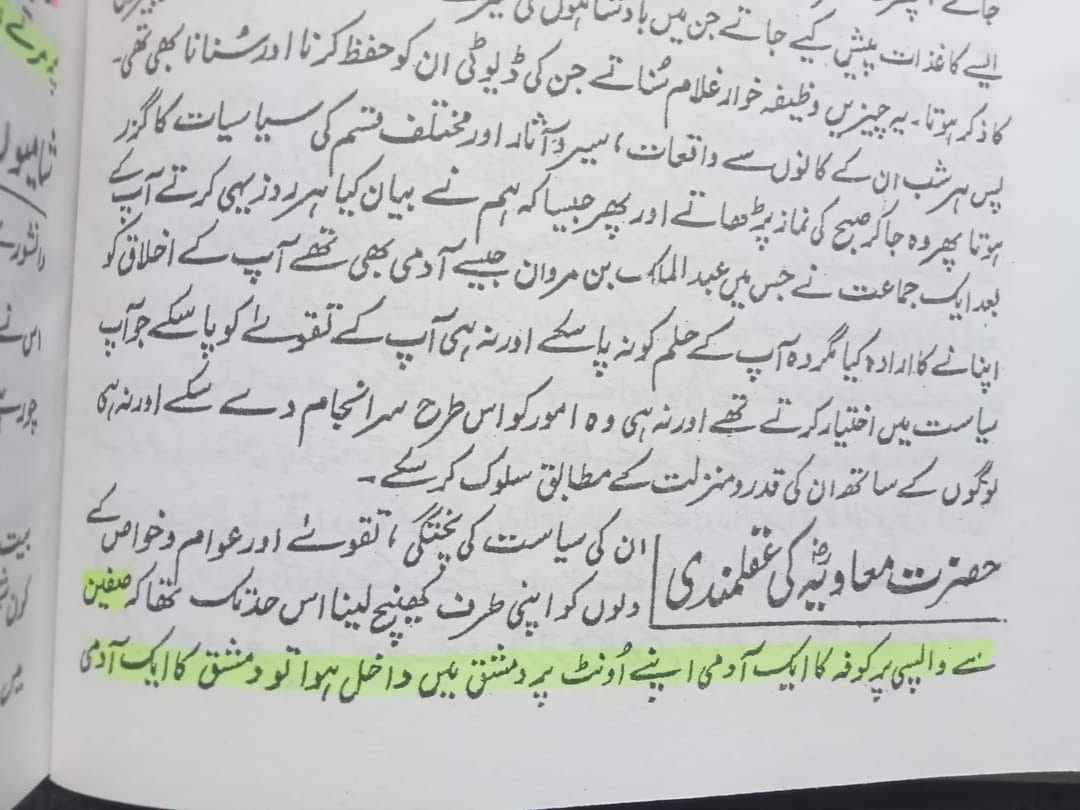 جاتے
ایسے کاغذات پیش کیے جاتے جن میں بادشاہوں کی سیرت
کا ذکر ہوتا۔ یہ چیزیں وظیفہ خوار غلام سُناتے جن کی ڈیوٹی ان کو حفظ کرنا اور سُنانا بھی تھی۔
پس ہر شب ان کے کانوں سے واقعات، سیر و آثار اور مختلف قسم کی سیاسیات کا گزر
ہوتا پھر وہ جا کر صبح کی نماز پڑھاتے اور پھر جیسا کہ ہم نے بیان کیا ہر روز یہی کرتے آپ کے
بعد ایک جماعت نے جس میں عبد الملک بن مروان جیسے آدمی بھی تھے آپ کے اخلاق کو
اپنانے کا ارادہ کیا مگر وہ آپ کے حلم کو نہ پا سکے اور نہ ہی آپ کے تقوےٰ کو پا سکے جو آپ
سیاست میں اختیار کرتے تھے اور نہ ہی وہ امور کو اس طرح سرانجام دے سکے اور نہ ہی
لوگوں کے ساتھ ان کی قدر و منزلت کے مطابق سلوک کر سکے۔
حضرت معاویہؓ کی عقلمندی
ان کی سیاست کی پختگی، تقوےٰ اور عوام و خواص کے
دلوں کو اپنی طرف کھینچ لینا اس حد تک تھا کہ صفین
سے واپسی پر کوفہ کا ایک آدمی اپنے اُونٹ پر دمشق میں داخل ہوا تو دمشق کا ایک آدمی